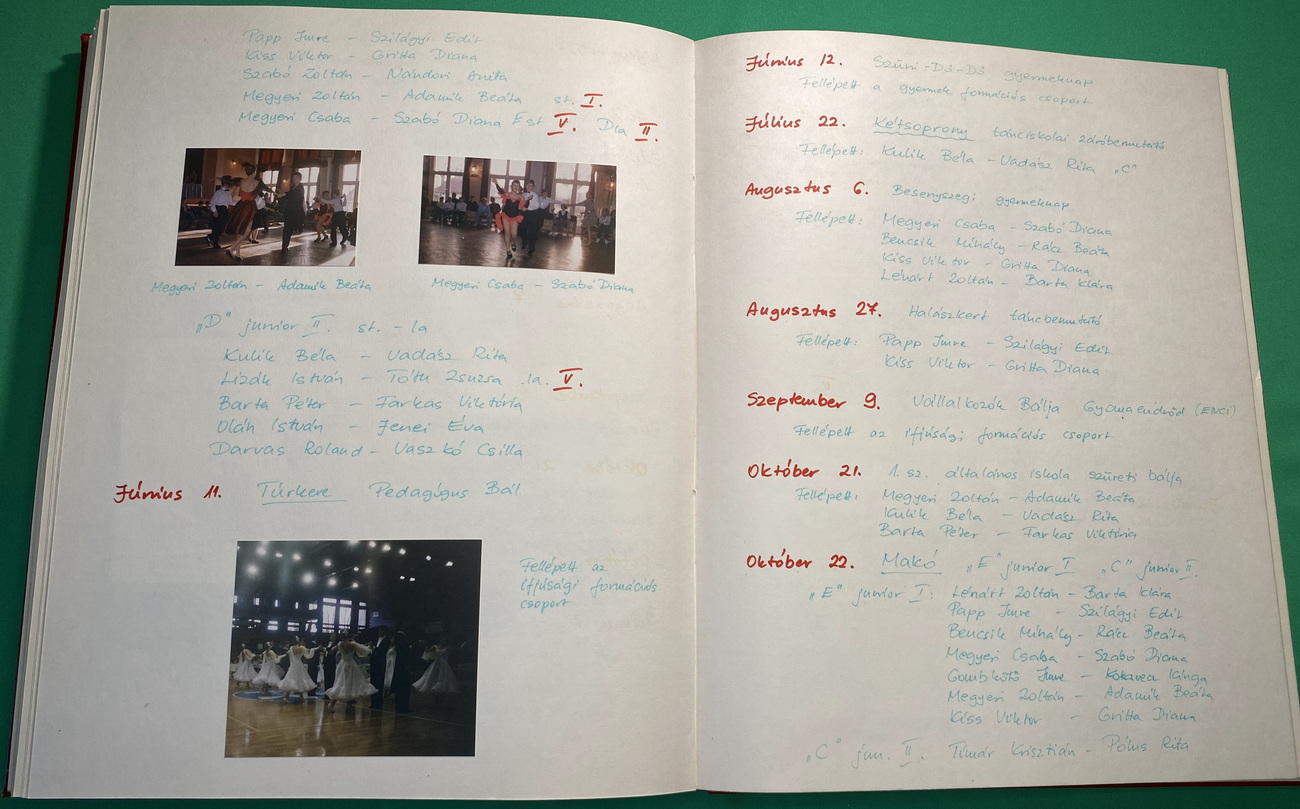 Papp Imre - Szilágyi Edit
Kiss Viktor - Gritta Diana
Szabó Zoltán - Nándori Anita
Megyeri Zoltán - Adamik Beáta st. I.
Megyeri Csaba - Szabó Diana Est V. Dla II.
Megyeri Zoltán - Adamik Beáta
Megyeri Csaba - Szabó Diana
„D" junior II. st. - la
Kulik Béla - Vadász Rita
Lizák István - Tóth Zsuzsa la. V.
Barta Péter - Farkas Viktória
Oláh István - Jenei Éva
Darvas Roland - Vaszkó Csilla
Június 11. Túrkeve Pedagógus Bál
Fellépett az
ifjúsági formációs
csoport
Június 12. Szüni-Dí-Dí gyermeknap
Fellépett a gyermek formációs csoport
Július 22. Kétsoprony tánciskolai záróbemutató
Fellépett: Kulik Béla - Vadász Rita „C"
Augusztus 6. Besenyszegi gyermeknap
Fellépett: Megyeri Csaba - Szabó Diana
Bencsik Mihály - Rácz Beáta
Kiss Viktor - Gritta Diana
Lénárt Zoltán - Barta Klára
Augusztus 27. Halászkert táncbemutató
Fellépett: Papp Imre - Szilágyi Edit
Kiss Viktor - Gritta Diana
Szeptember 9. Vállalkozók Bálja Gyomaendrőd (ENCI)
Fellépett az ifjúsági formációs csoport
Október 21. 1. sz. általános iskola szüreti bálja
Fellépett: Megyeri Zoltán - Adamik Beáta
Kulik Béla - Vadász Rita
Barta Péter - Farkas Viktória
Október 22. Makó „E" junior I „C" junior II.
„E" junior I: Lénárt Zoltán - Barta Klára
Papp Imre - Szilágyi Edit
Bencsik Mihály - Rácz Beáta
Megyeri Csaba - Szabó Diana
Gombkötő Imre - Kinga
Megyeri Zoltán - Adamik Beáta
Kiss Viktor - Gritta Diana
„C" jun. II. Tímár Krisztián - Pólus Rita